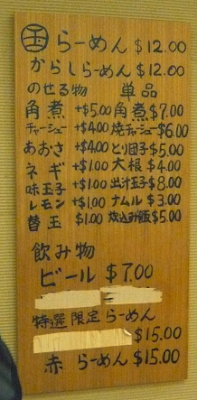 玉 らーめん $12.00
からしらーめん $12.00
のせる物 単品
角煮 +$5.00 角煮 $7.00
チャーシュー +$4.00 焼チャーシュー $6.00
あおさ +$4.00 とり団子 $5.00
ネギ +$1.00 大根 $4.00
味玉子 +$1.00 出汁玉子 $8.00
レモン +$1.00 ナムル $3.00
替玉 $1.00 炊込み飯 $5.00
飲み物
ビール $7.00
特選限定らーめん
$15.00
赤 らーめん $15.00